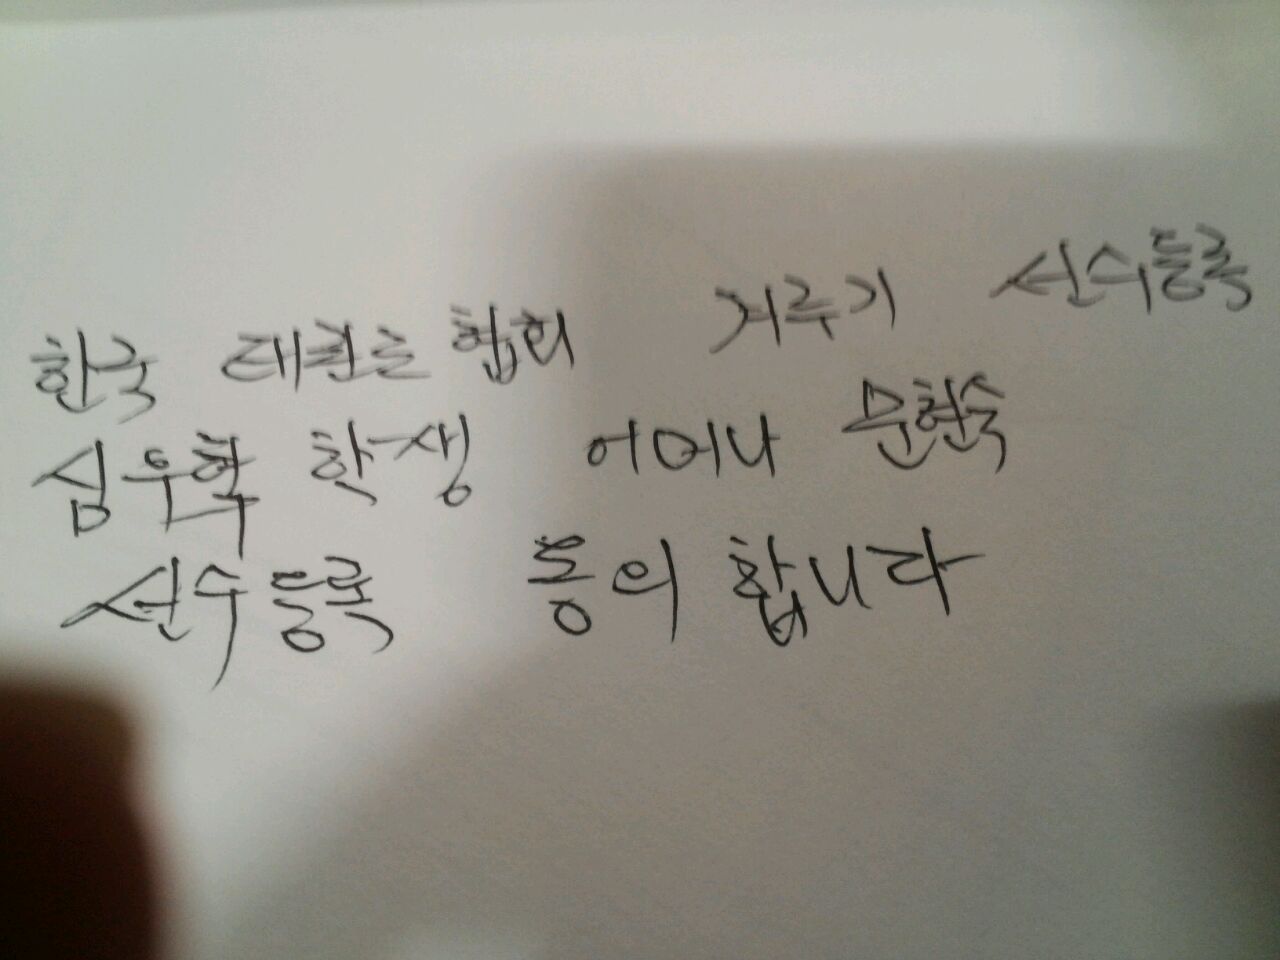 한국 태권도 협회 겨루기 선수등록
심우혁 학생 어머나 문현숙
선수등록 동의 합니다